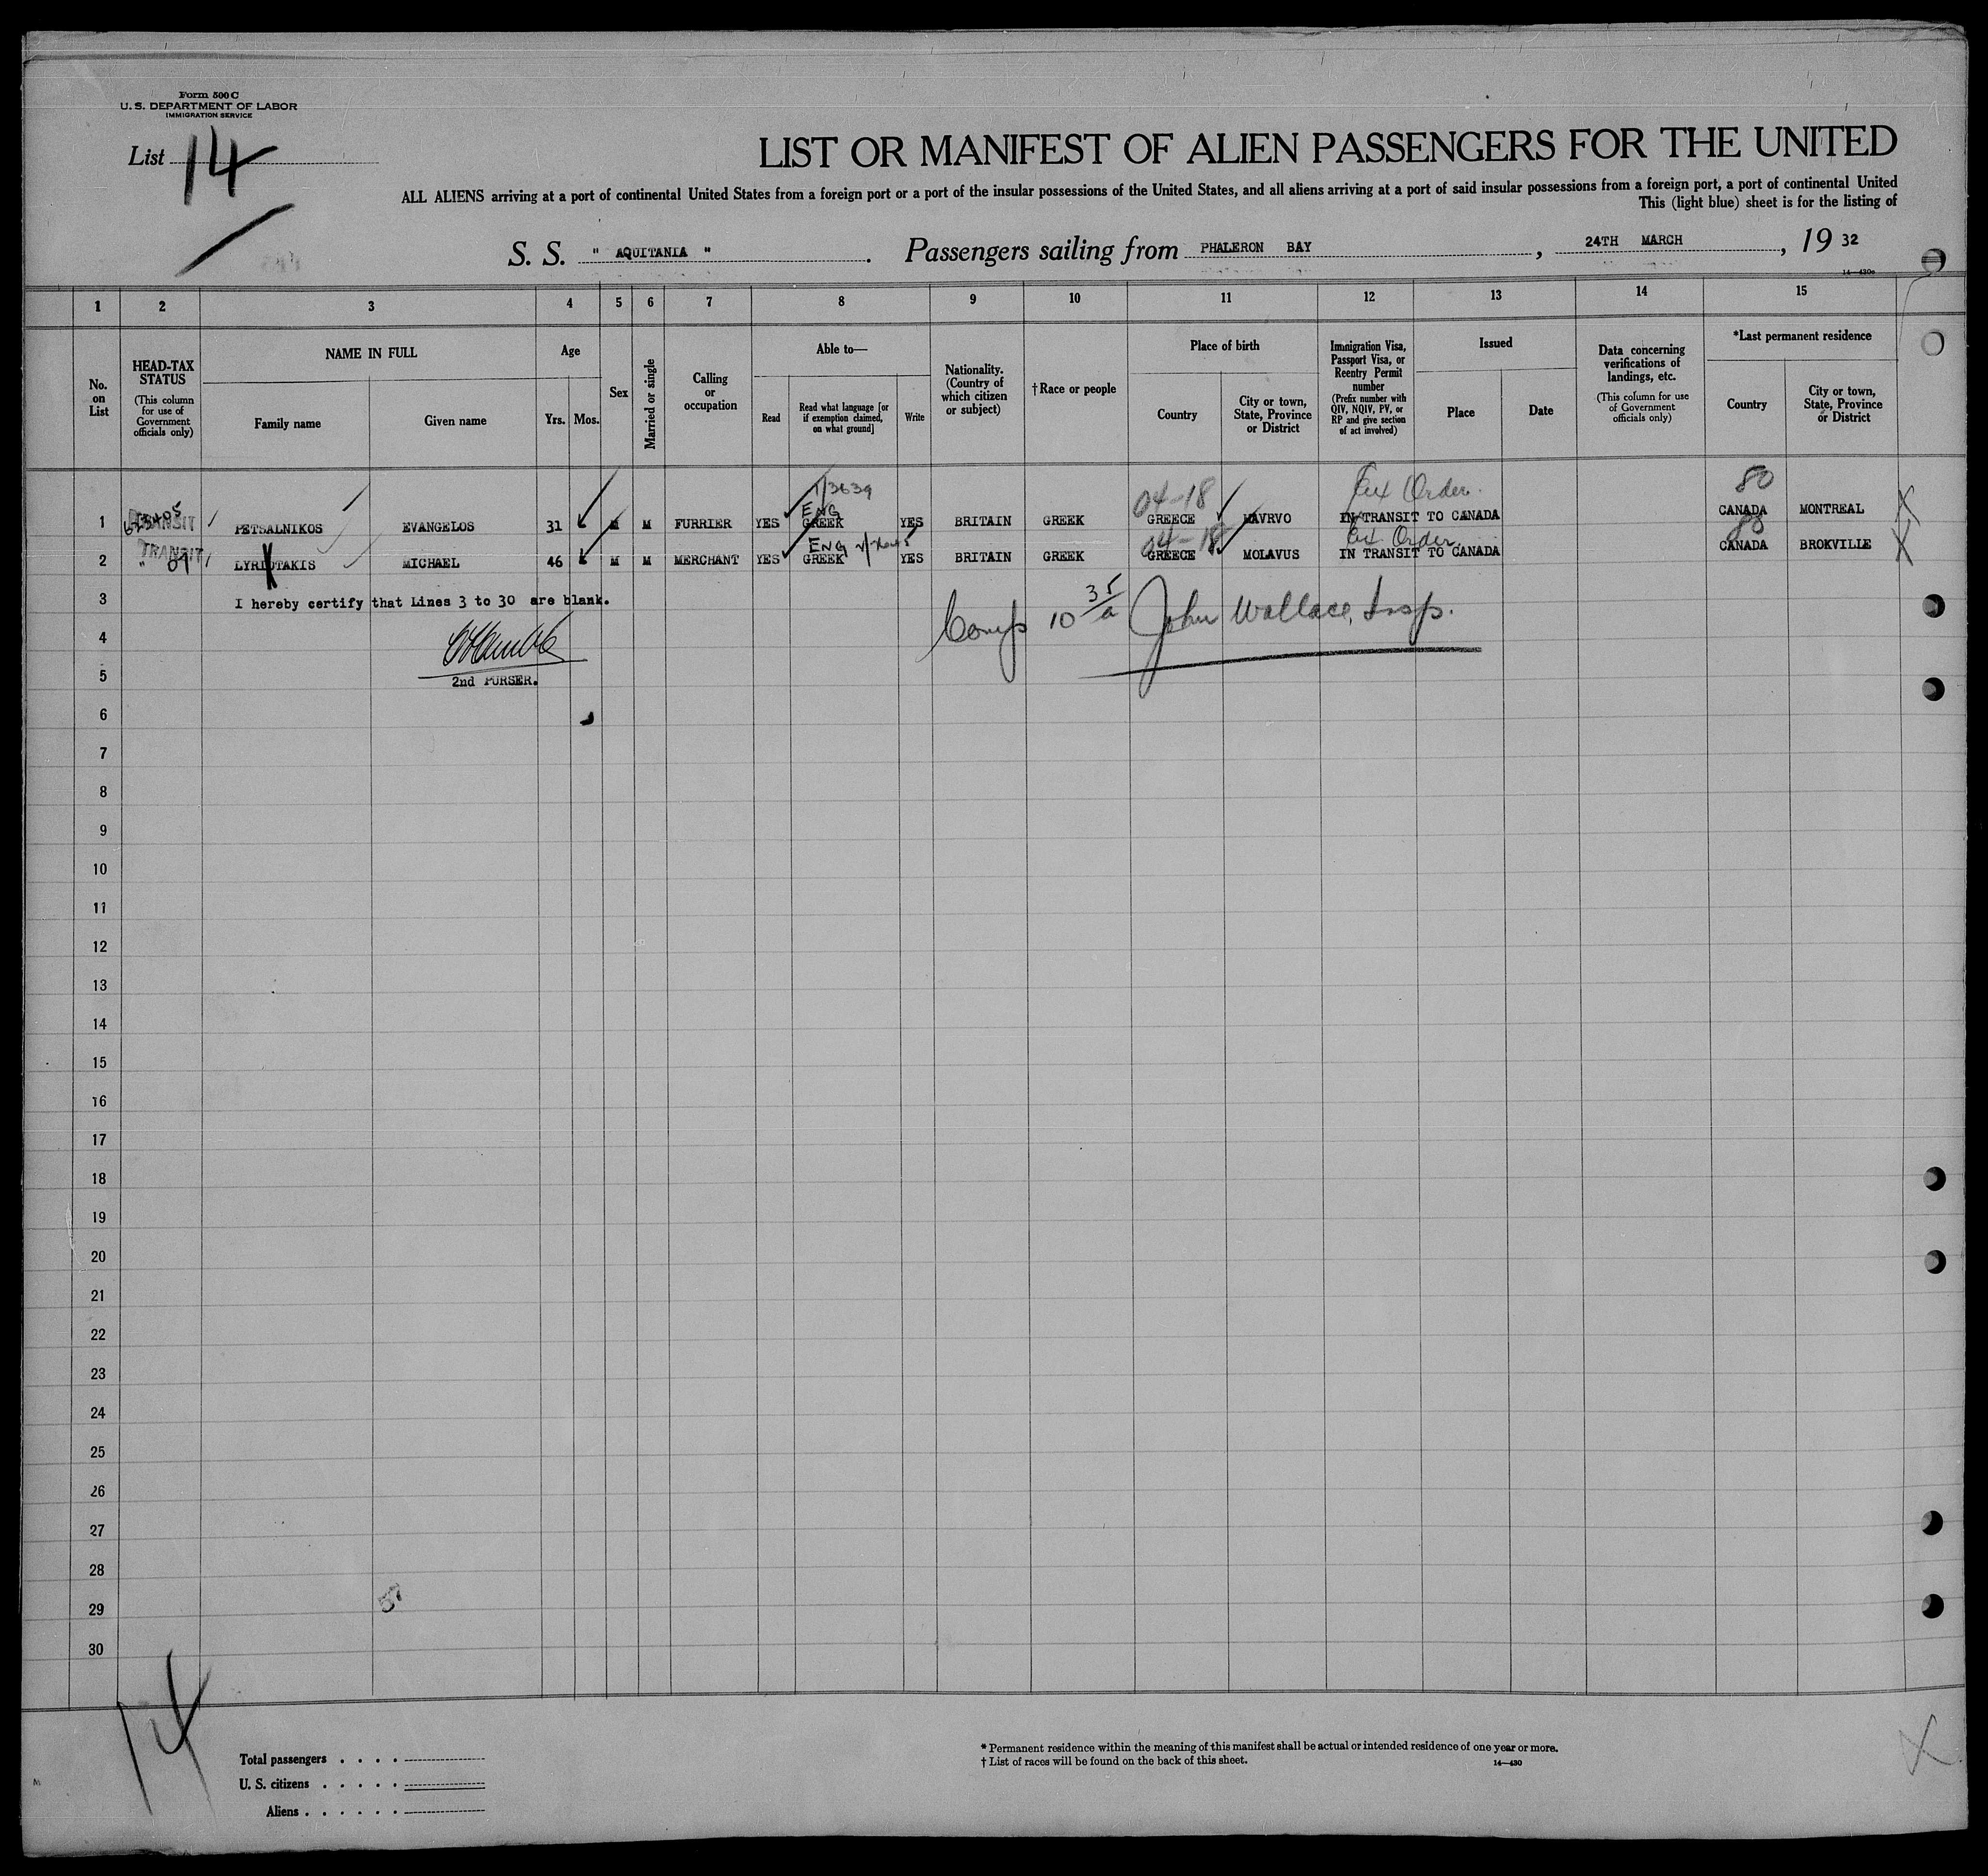 Form 500 C
U. S. DEPARTMENT OF LABOR
IMMIGRATION SERVICE
List 14
LIST OR MANIFEST OF ALIEN PASSENGERS FOR THE UNITED
ALL ALIENS arriving at a port of continental United States from a foreign port or a port of the insular possessions of the United States, and all aliens arriving at a port of said insular possessions from a foreign port, a port of continental United
This (light blue) sheet is for the listing of
S. S. " AQUITANIA " . Passengers sailing from PHALERON BAY , 24TH MARCH , 19 32
14—430a
1 2 3 4 5 6 7 8 9 10 11 12 13 14 15
No. on List
HEAD-TAX STATUS
(This column for use of Government officials only)
NAME IN FULL
Family name Given name
Age
Yrs. Mos.
Sex
Married or single
Calling or occupation
Able to—
Read
Read what language [or if exemption claimed, on what ground]
Write
Nationality. (Country of which citizen or subject)
† Race or people
Place of birth
Country
City or town, State, Province or District
Immigration Visa, Passport Visa, or Reentry Permit number
(Prefix number with QIV, NQIV, PV, or RP and give section of act involved)
Issued
Place Date
Data concerning verifications of landings, etc.
(This column for use of Government officials only)
*Last permanent residence
Country
City or town, State, Province or District
04-18 80
ENG
1 TRANSIT PETSALNIKOS EVANGELOS 31 M M FURRIER YES GREEK YES BRITAIN GREEK GREECE MAVRVO IN TRANSIT TO CANADA CANADA MONTREAL
ENG 04-18 Order 80
2 TRANSIT " 09 LYRIOTAKIS MICHAEL 46 M M MERCHANT YES GREEK YES BRITAIN GREEK GREECE MOLAVUS IN TRANSIT TO CANADA CANADA BROKVILLE
3 I hereby certify that Lines 3 to 30 are blank.
Comp 10 35/a John Wallace, Insp.
4
5 2nd PURSER.
6
7
8
9
10
11
12
13
14
15
16
17
18
19
20
21
22
23
24
25
26
27
28
29
30
14
Total passengers . . . .
U. S. citizens . . . . .
Aliens . . . . . .
* Permanent residence within the meaning of this manifest shall be actual or intended residence of one year or more.
† List of races will be found on the back of this sheet.
14—430